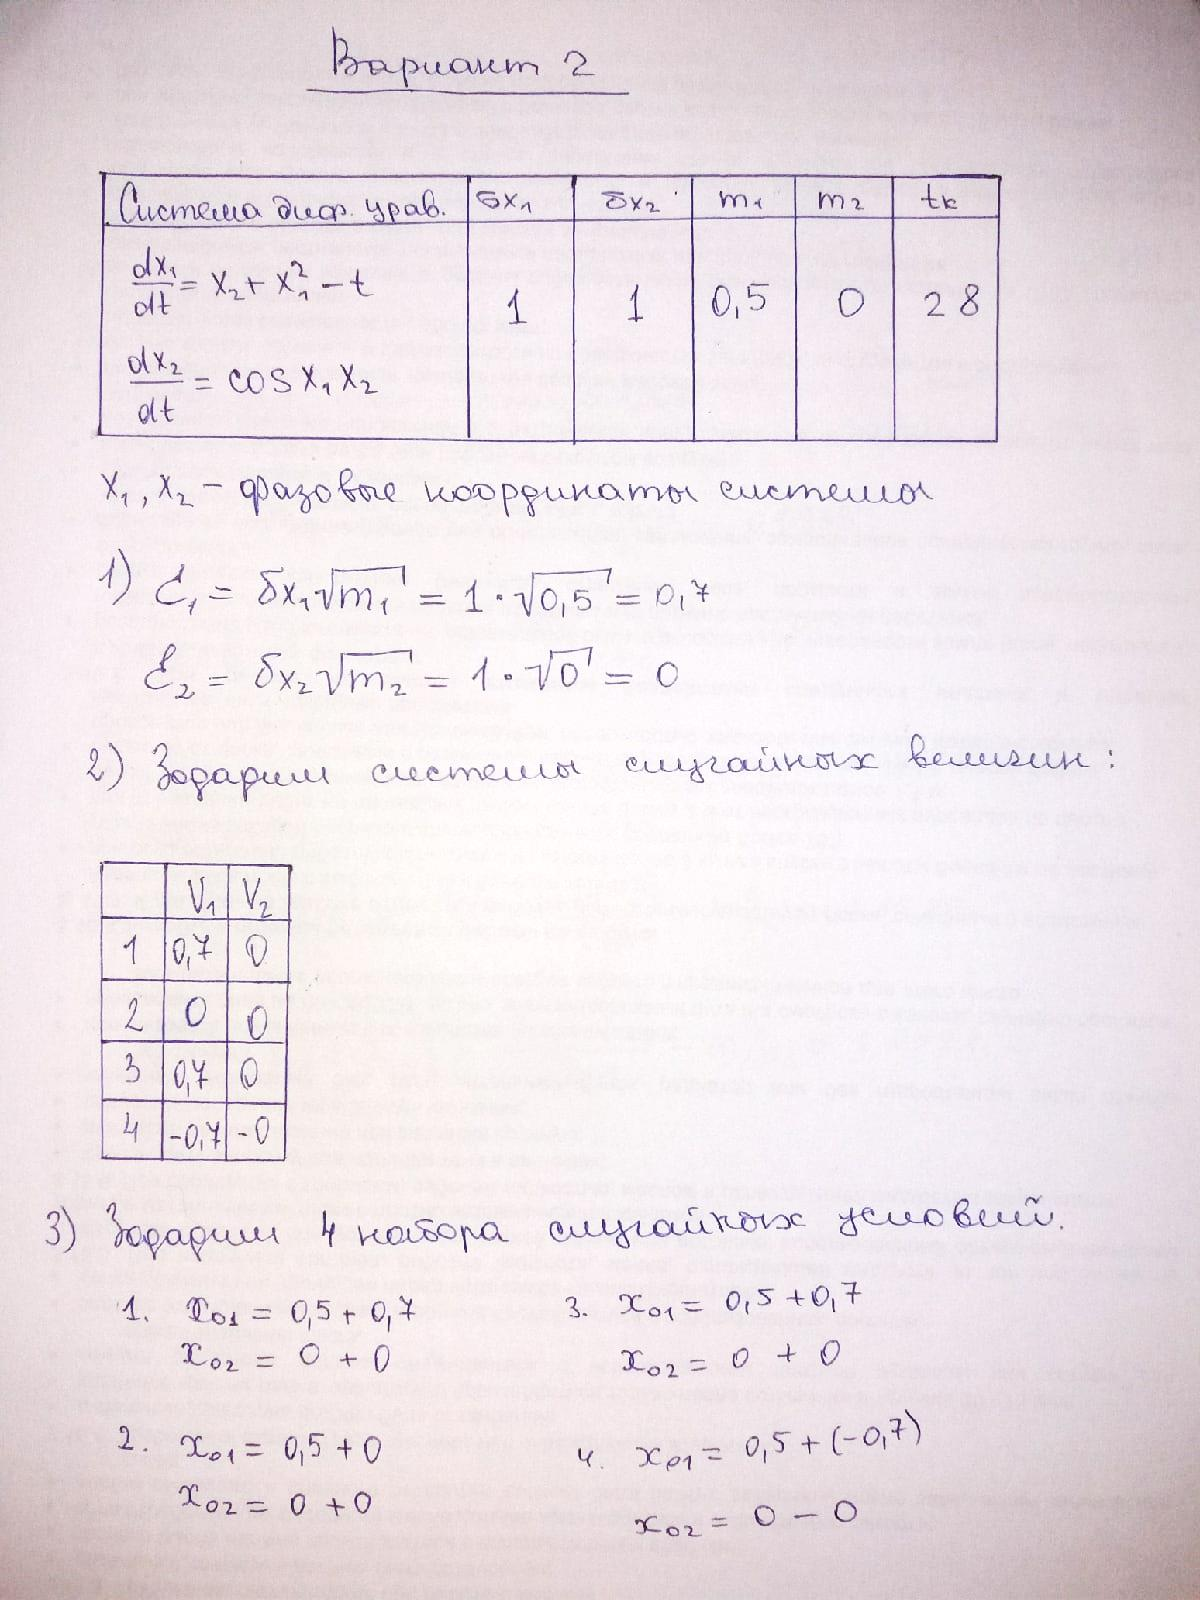 Вариант 2
Система диф. урав. δx₁ δx₂ m₁ m₂ tк
dx₁/dt = x₂ + x₁² − t
1 1 0,5 0 28
dx₂/dt = cos x₁ x₂
x₁, x₂ – фазовые координаты системы
1) Ɛ₁ = δx₁√m₁ = 1·√0,5 = 0,7
Ɛ₂ = δx₂√m₂ = 1·√0 = 0
2) Зодарим системы случайных величин:
V₁ V₂
1 0,7 0
2 0 0
3 0,7 0
4 -0,7 -0
3) Зодадим 4 набора случайных условий.
1. x₀₁ = 0,5 + 0,7
x₀₂ = 0 + 0
2. x₀₁ = 0,5 + 0
x₀₂ = 0 + 0
3. x₀₁ = 0,5 + 0,7
x₀₂ = 0 + 0
4. x₀₁ = 0,5 + (-0,7)
x₀₂ = 0 − 0